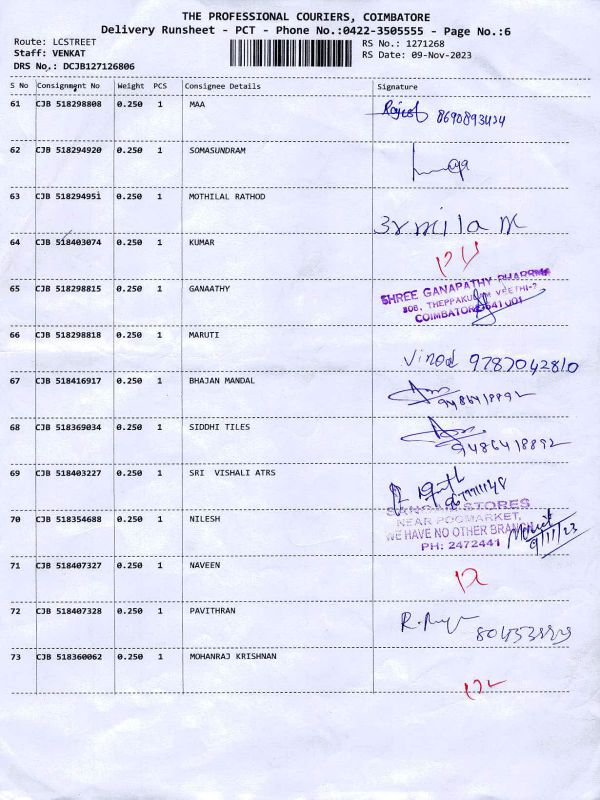 THE PROFESSIONAL COURIERS, COIMBATORE
Delivery Runsheet - PCT - Phone No.:0422-3505555 - Page No.:6
Route: LCSTREET RS No.: 1271268
Staff: VENKAT RS Date: 09-Nov-2023
DRS No.: DCJB127126806
S No Consignment No Weight PCS Consignee Details Signature
61 CJB 518298808 0.250 1 MAA
Rajesh
62 CJB 518294920 0.250 1 SOMASUNDRAM
63 CJB 518294951 0.250 1 MOTHILAL RATHOD
64 CJB 518403074 0.250 1 KUMAR
65 CJB 518298815 0.250 1 GANAATHY
SHREE GANAPATHY PHARRMA
COIMBATORE-641 001
66 CJB 518298818 0.250 1 MARUTI
Vinod 9787042810
67 CJB 518416917 0.250 1 BHAJAN MANDAL
9486418892
68 CJB 518369034 0.250 1 SIDDHI TILES
9486418892
69 CJB 518403227 0.250 1 SRI VISHALI ATRS
70 CJB 518354688 0.250 1 NILESH
STORES
NEAR POOMARKET,
WE HAVE NO OTHER BRANCH
PH: 2472441
9/11/23
71 CJB 518407327 0.250 1 NAVEEN
72 CJB 518407328 0.250 1 PAVITHRAN
73 CJB 518360062 0.250 1 MOHANRAJ KRISHNAN